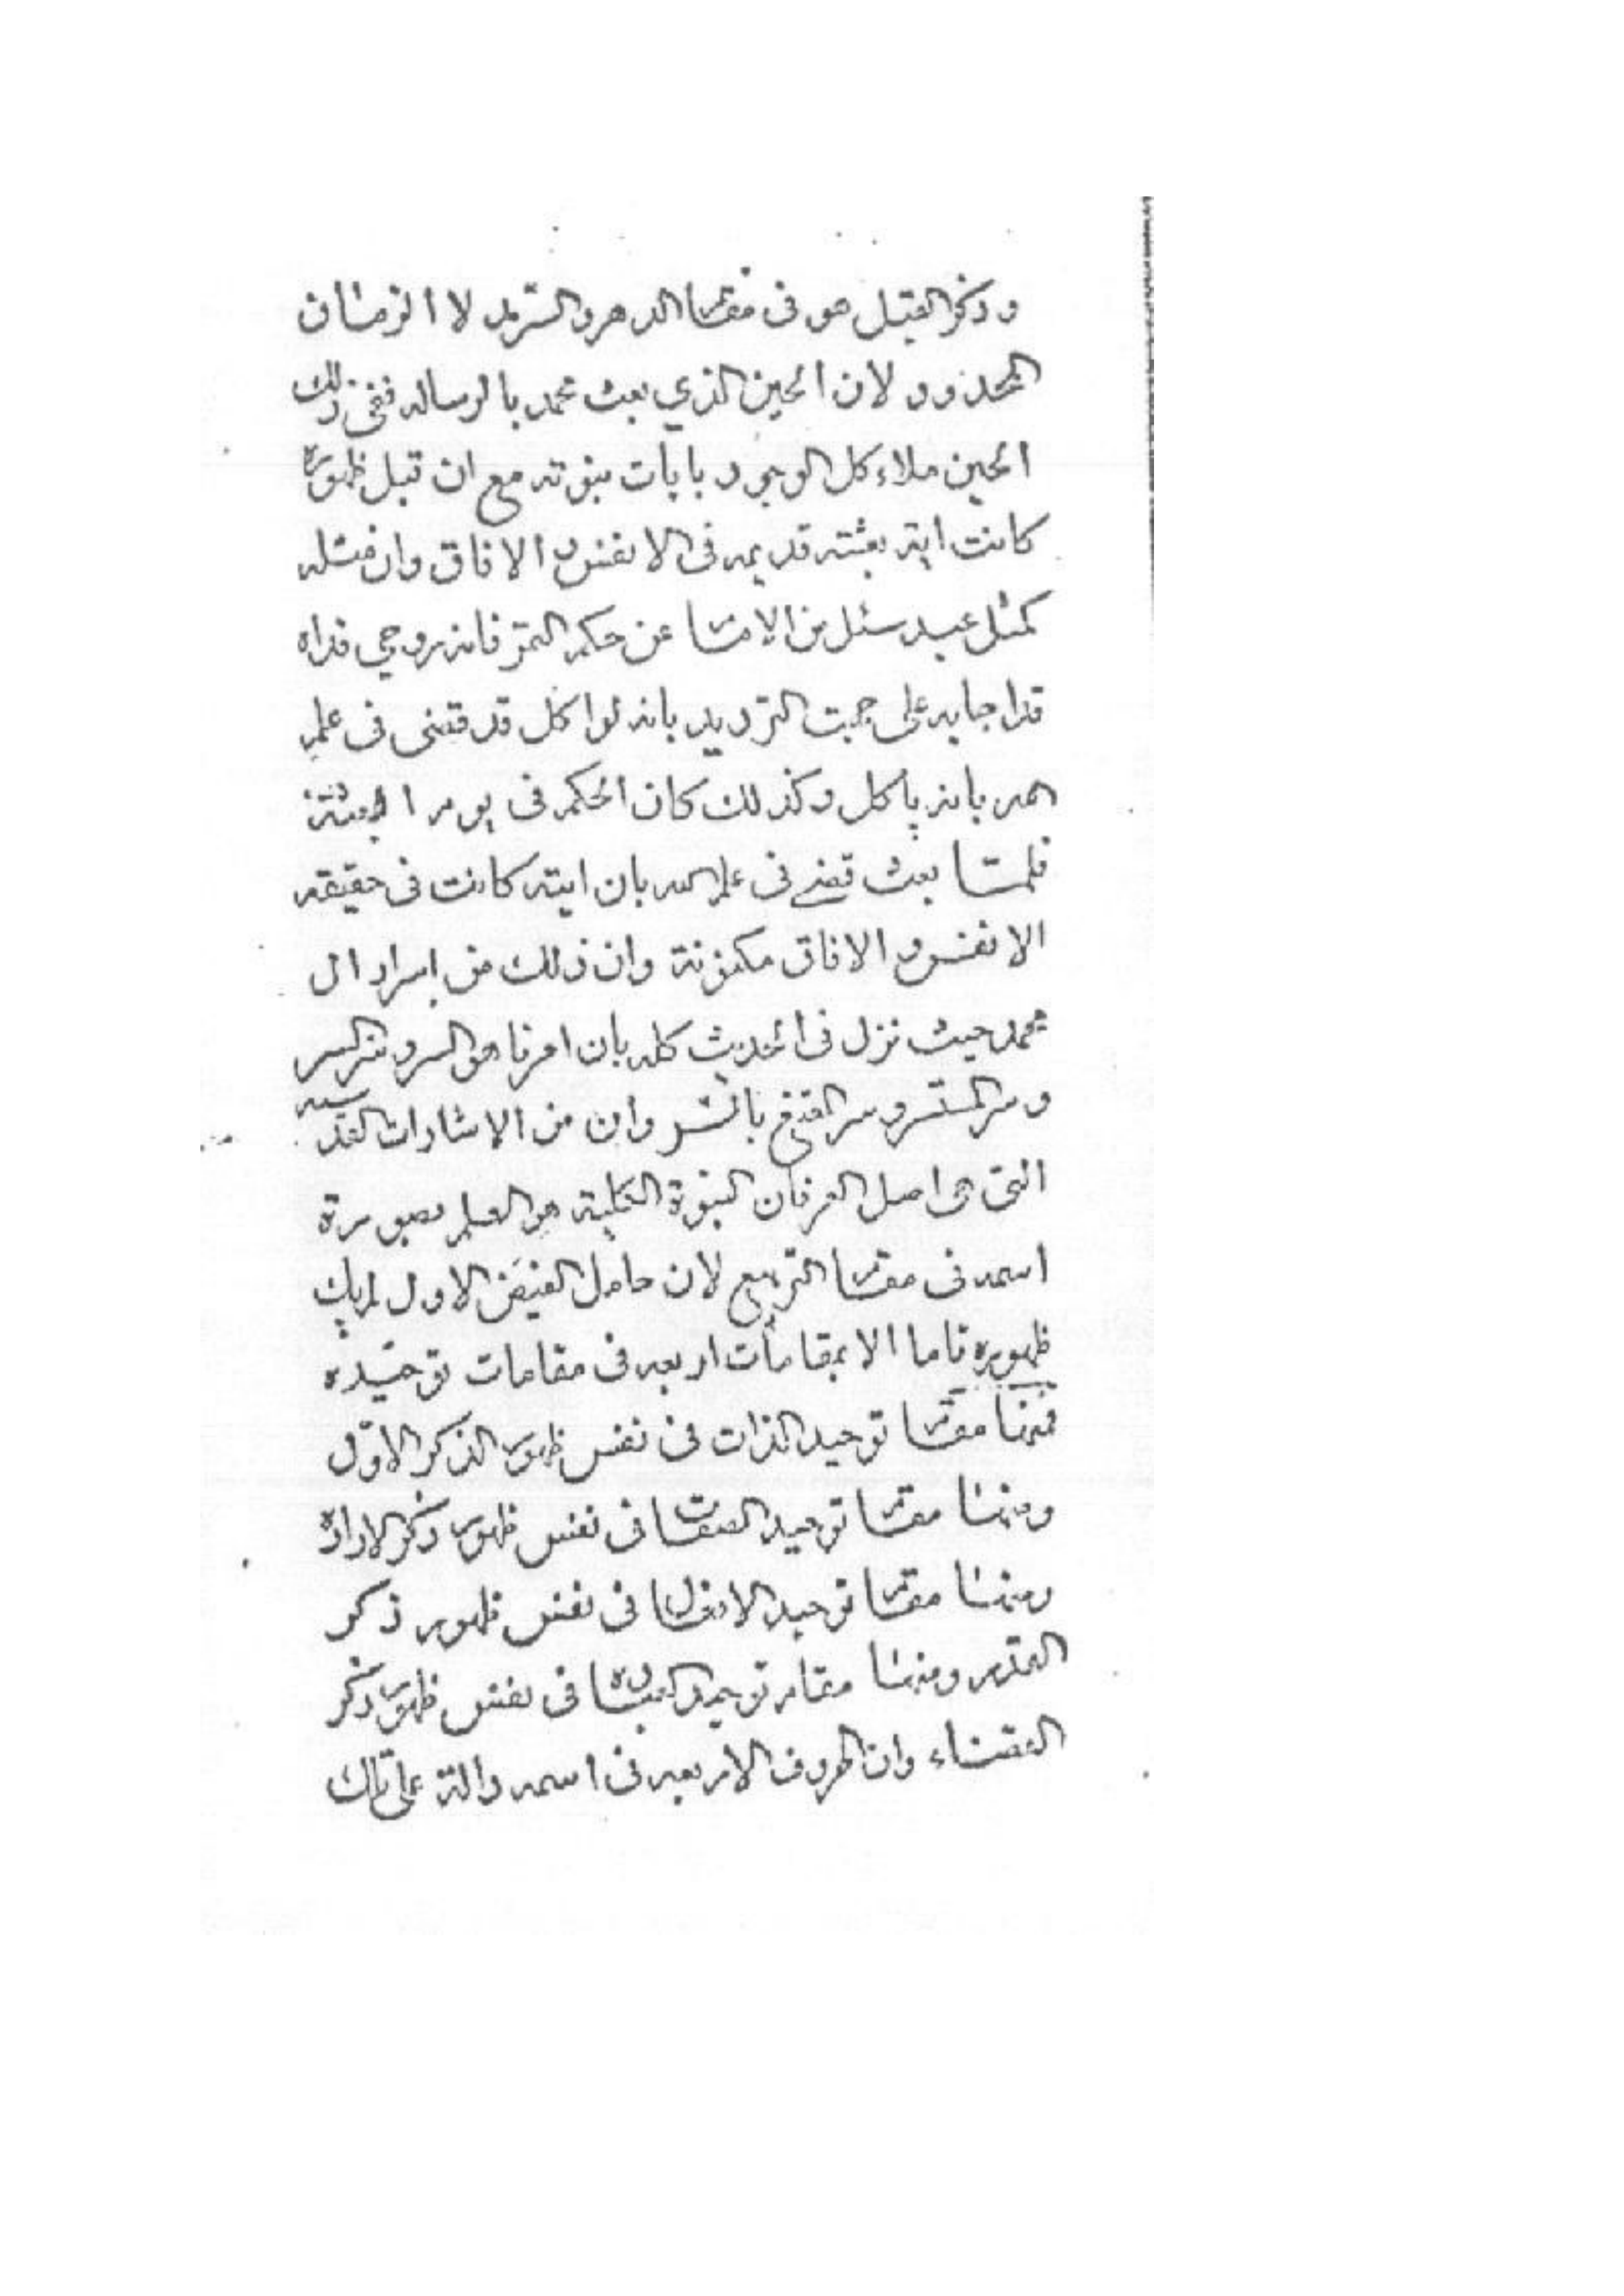 وذكر القبل هو فى مقام الدهر والسرمد لا الزمان
المحدود لان الحين الذي بعث محمد بالرساله ففى ذلك
الحين ملاء كل الوجود بايات نبوته مع ان قبل ظهوره
كانت اية بعثته قديمه فى الانفس و الافاق وان مثله
كمثل عبد سئل من الامام عن حكم التمر فانه روحي فداه
قد اجابه على جهت الترديد بانه لو اكل قد قضى فى علم
الله بانه ياكل وكذلك كان الحكم فى يوم البعثة
فلما بعث قضى فى علم الله بان ايته كانت فى حقيقه
الانفس و الافاق مكنونة وان ذلك من اسرار ال
محمد حيث نزل فى الحديث كله بان امرنا هو السر و سر السر
و سر المستسر و سر المقنع بالسر وان من الاشارات القدسيه
التى هى اصل العرفان النبوة الكلية هو العلم بصورة
اسمه فى مقام التربيع لان حامل الفيض الاول لم يك
ظهوره تاما الا بمقامات اربعه فى مقامات توحيده
فمنها مقام توحيد الذات فى نفس ظهور الذكر الاول
ومنها مقام توحيد الصفات فى نفس ظهور ذكر الارادة
ومنها مقام توحيد الافعال فى نفس ظهور ذكر
القدر ومنها مقام توحيد العبادة فى نفس ظهور ذكر
القضاء وان الحروف الاربعه فى اسمه دالة على تلك